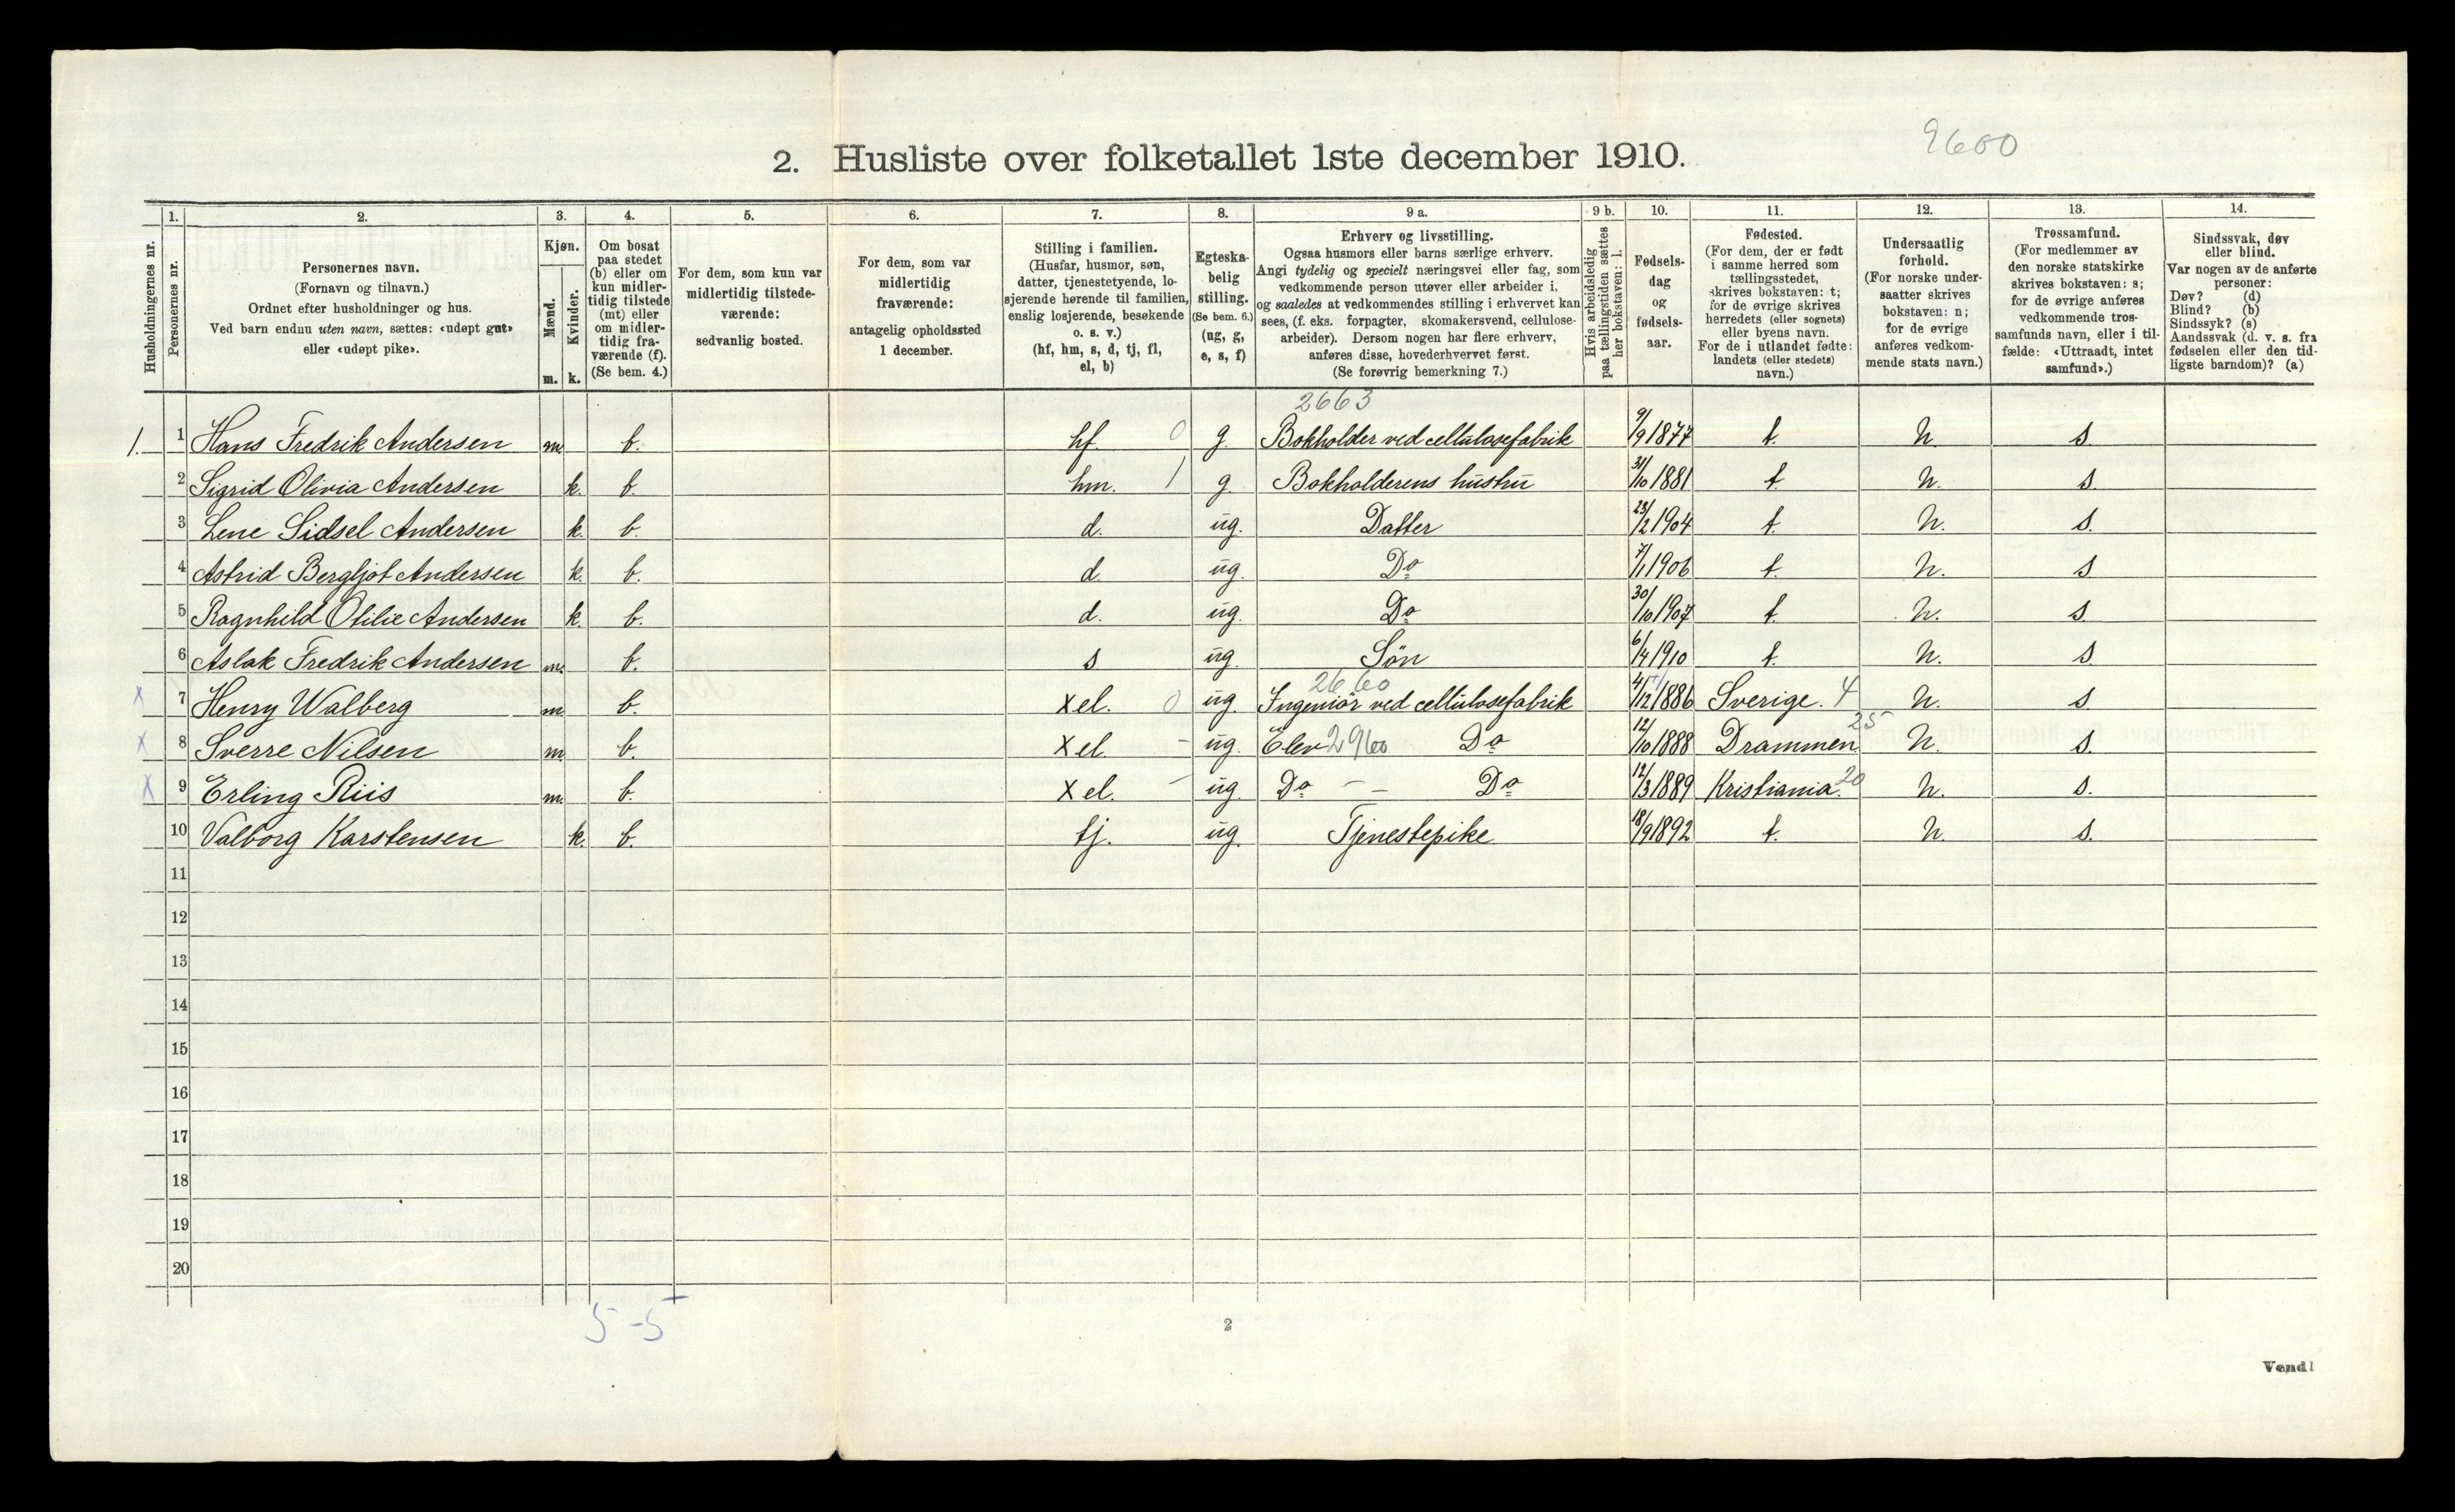 2. Husliste over folketallet 1ste december 1910.
9600
Husholdningernes nr.
1. Personernes nr.
2. Personernes navn.
(Fornavn og tilnavn.)
Ordnet efter husholdninger og hus.
Ved barn endnu uten navn, sættes: «udøpt gut»
eller «udøpt pike».
3. Kjøn.
Mænd. m.
Kvinder. k.
4. Om bosat
paa stedet
(b) eller om
kun midler-
tidig tilstede
(mt) eller
om midler-
tidig fra-
værende (f).
(Se bem. 4.)
5. For dem, som kun var
midlertidig tilstede-
værende:
sedvanlig bosted.
6. For dem, som var
midlertidig
fraværende:
antagelig opholdssted
1 december.
7. Stilling i familien.
(Husfar, husmor, søn,
datter, tjenestetyende, lo-
sjerende hørende til familien,
enslig losjerende, besøkende
o. s. v.)
(hf, hm, s, d, tj, fl,
el, b)
8. Egteska-
belig
stilling.
(Se bem. 6.)
(ug, g,
e, s, f)
9 a. Erhverv og livsstilling.
Ogsaa husmors eller barns særlige erhverv.
Angi tydelig og specielt næringsvei eller fag, som
vedkommende person utøver eller arbeider i,
og saaledes at vedkommendes stilling i erhvervet kan
sees, (f. eks. forpagter, skomakersvend, cellulose-
arbeider). Dersom nogen har flere erhverv,
anføres disse, hovederhvervet først.
(Se forøvrig bemerkning 7.)
9 b. Hvis arbeidsledig
paa tællingstiden sættes
her bokstaven: l.
10. Fødsels-
dag
og
fødsels-
aar.
11. Fødested.
(For dem, der er født
i samme herred som
tællingsstedet,
skrives bokstaven: t;
for de øvrige skrives
herredets (eller sognets)
eller byens navn.
For de i utlandet fødte:
landets (eller stedets)
navn.)
12. Undersaatlig
forhold.
(For norske under-
saatter skrives
bokstaven: n;
for de øvrige
anføres vedkom-
mende stats navn.)
13. Trossamfund.
(For medlemmer av
den norske statskirke
skrives bokstaven: s;
for de øvrige anføres
vedkommende tros-
samfunds navn, eller i til-
fælde: «Uttraadt, intet
samfund».)
14. Sindssvak, døv
eller blind.
Var nogen av de anførte
personer:
Døv? (d)
Blind? (b)
Sindssyk? (s)
Aandssvak (d. v. s. fra
fødselen eller den tid-
ligste barndom)? (a)
2663
1. 1 Hans Fredrik Andersen m. b. hf. 0 g. Bokholder ved cellulosefabrik 9/9 1877 t. n. s.
2 Sigrid Olivia Andersen k. b. hm. 1 g. Bokholderens hustru 31/10 1881 t. n. s.
3 Lene Sidsel Andersen k. b. d. ug. Datter 23/2 1904 t. n. s.
4 Astrid Bergljot Andersen k. b. d. ug. Do 7/1 1906 t. n. s
5 Ragnhild Otilie Andersen k. b. d. ug. Do 30/10 1907 t. n. s.
6 Aslak Fredrik Andersen m. b. s ug. Sön 6/4 1910 t. n. s
2660
x 7 Henry Walberg m b. x el. 0 ug. Ingeniör ved cellulosefabrik 4/12 1886 Sverige. 4 n. s
x 8 Sverre Nilsen m b. x el. - ug. Elev 2960 Do 12/10 1888 Drammen 25 n. s.
x 9 Erling Riis m. b. x el. - ug. Do - - Do 12/3 1889 Kristiania. 20 n. s.
10 Valborg Karstensen k. b. tj. ug. Tjenestepike 18/9 1892 t. n. s.
11
12
13
14
15
16
17
18
19
20
5-5
2
Vend!